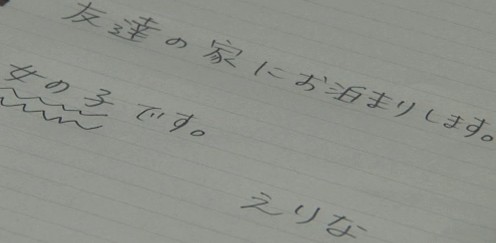 友達の家にお泊まりします。
女の子です。
えりな